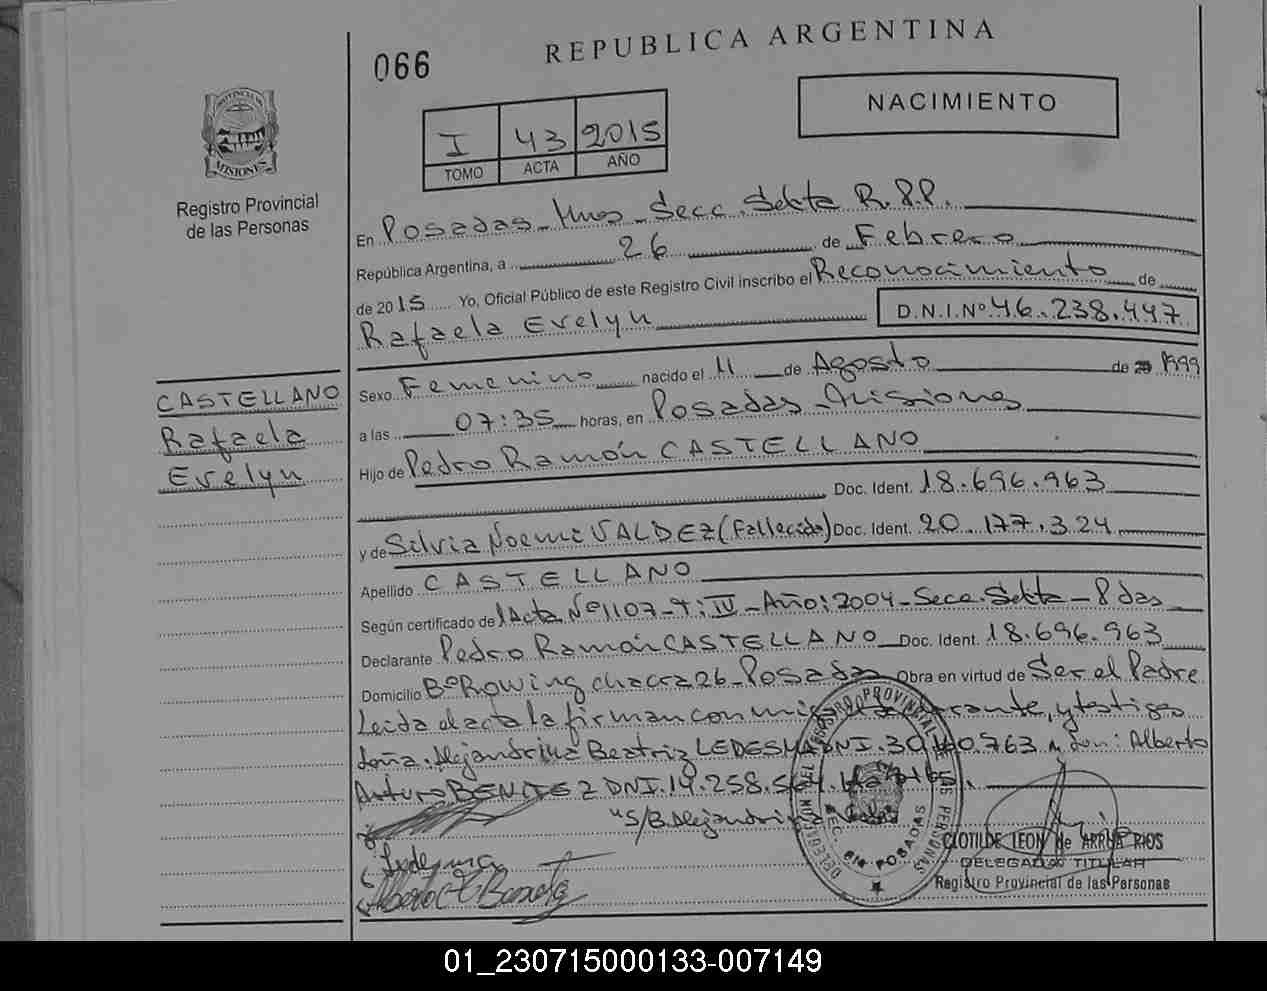 066
REPUBLICA ARGENTINA
NACIMIENTO
I 43 2015
TOMO ACTA AÑO
PROVINCIA DE MISIONES
Registro Provincial
de las Personas
En Posadas Mnes Secc. Sexta R.P.P.
República Argentina, a 26 de Febrero
de 2015 Yo, Oficial Público de este Registro Civil inscribo el Reconocimiento de
Rafaela Evelyn D.N.I.Nº 46.238.447
CASTELLANO
Rafaela
Evelyn
Sexo Femenino nacido el 11 de Agosto de 1999
a las 07:35 horas, en Posadas Misiones
Hijo de Pedro Ramón CASTELLANO
Doc. Ident. 18.696.963
y de Silvia Noemi VALDEZ (Fallecida) Doc. Ident. 20.177.324
Apellido CASTELLANO
Según certificado de Acta Nº 1107-T: IV-Año: 2004-Secc. Sexta-Pdas
Declarante Pedro Ramón CASTELLANO Doc. Ident. 18.696.963
Domicilio Bº Rowing chacra 26-Posadas Obra en virtud de Ser el Padre
Leida el acta la firman conmigo y testigos
doña: Alejandrina Beatriz LEDESMA DNI. 763 y don: Alberto
Arturo BENITEZ DNI. 14.258.
"S/B Alejandrina
Ledesma
CLOTILDE LEON de ARRUA RIOS
DELEGADO TITULAR
Registro Provincial de las Personas
DELEGACION DEL REGISTRO PROVINCIAL DE PERSONAS
SEC. 6ta POSADAS
01_230715000133-007149